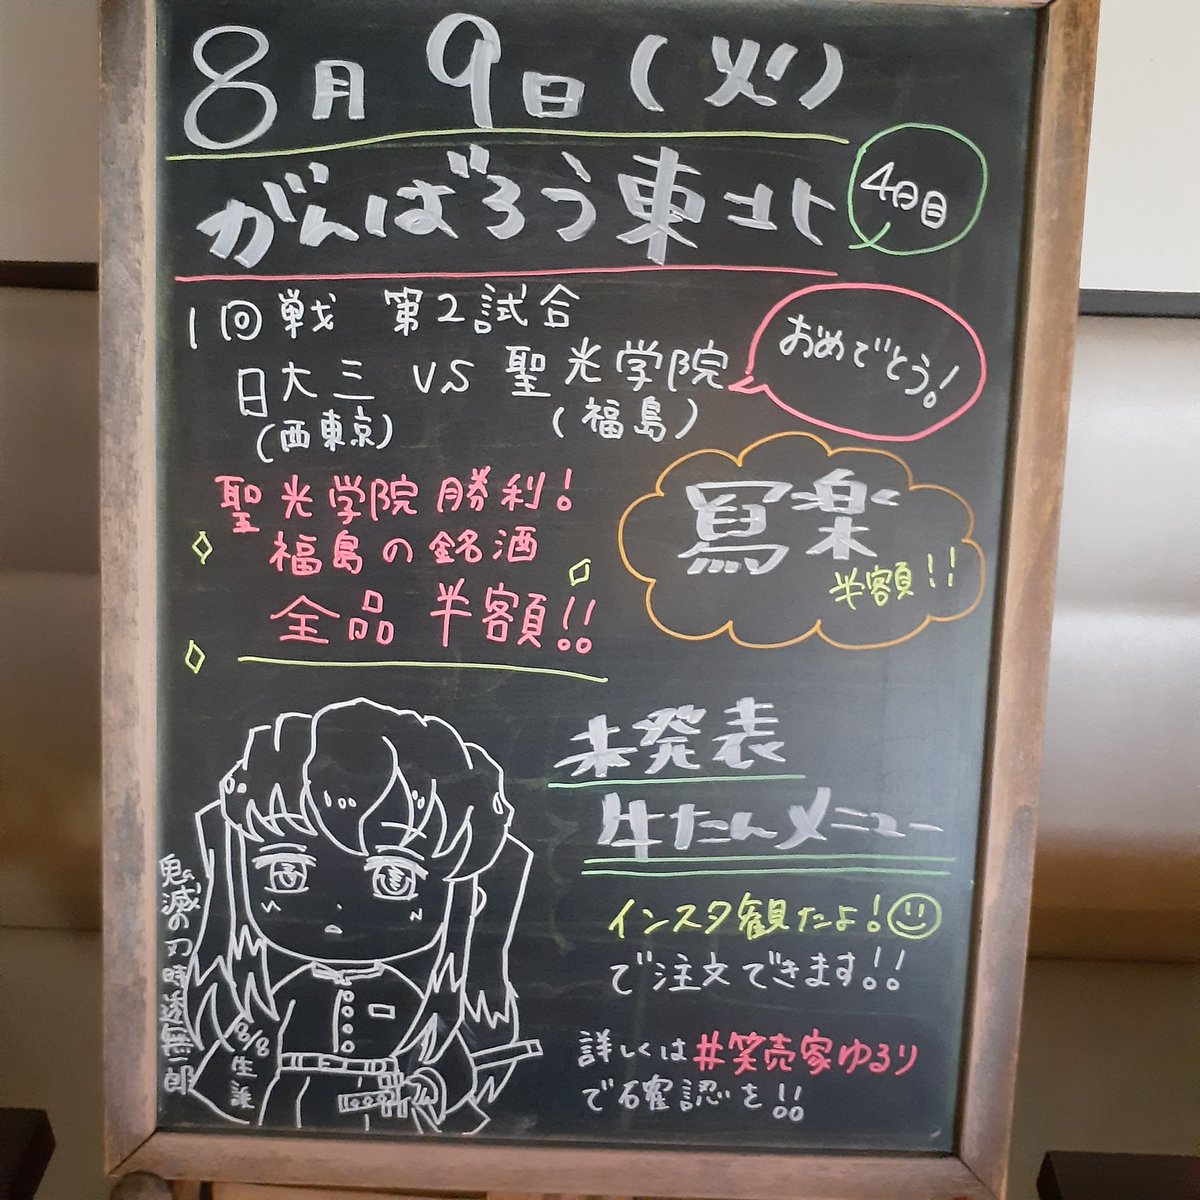 8月9日(火)
がんばろう東北
4日目
1回戦 第2試合
日大三 VS 聖光学院
(西東京) (福島)
おめでとう!
聖光学院勝利!
福島の銘酒
全品 半額!!
寫楽
半額!!
未発表
牛たんメニュー
インスタ観たよ!
で注文できます!!
詳しくは#笑売家ゆるり
で確認を!!
鬼滅の刃時透無一郎
8/8生誕